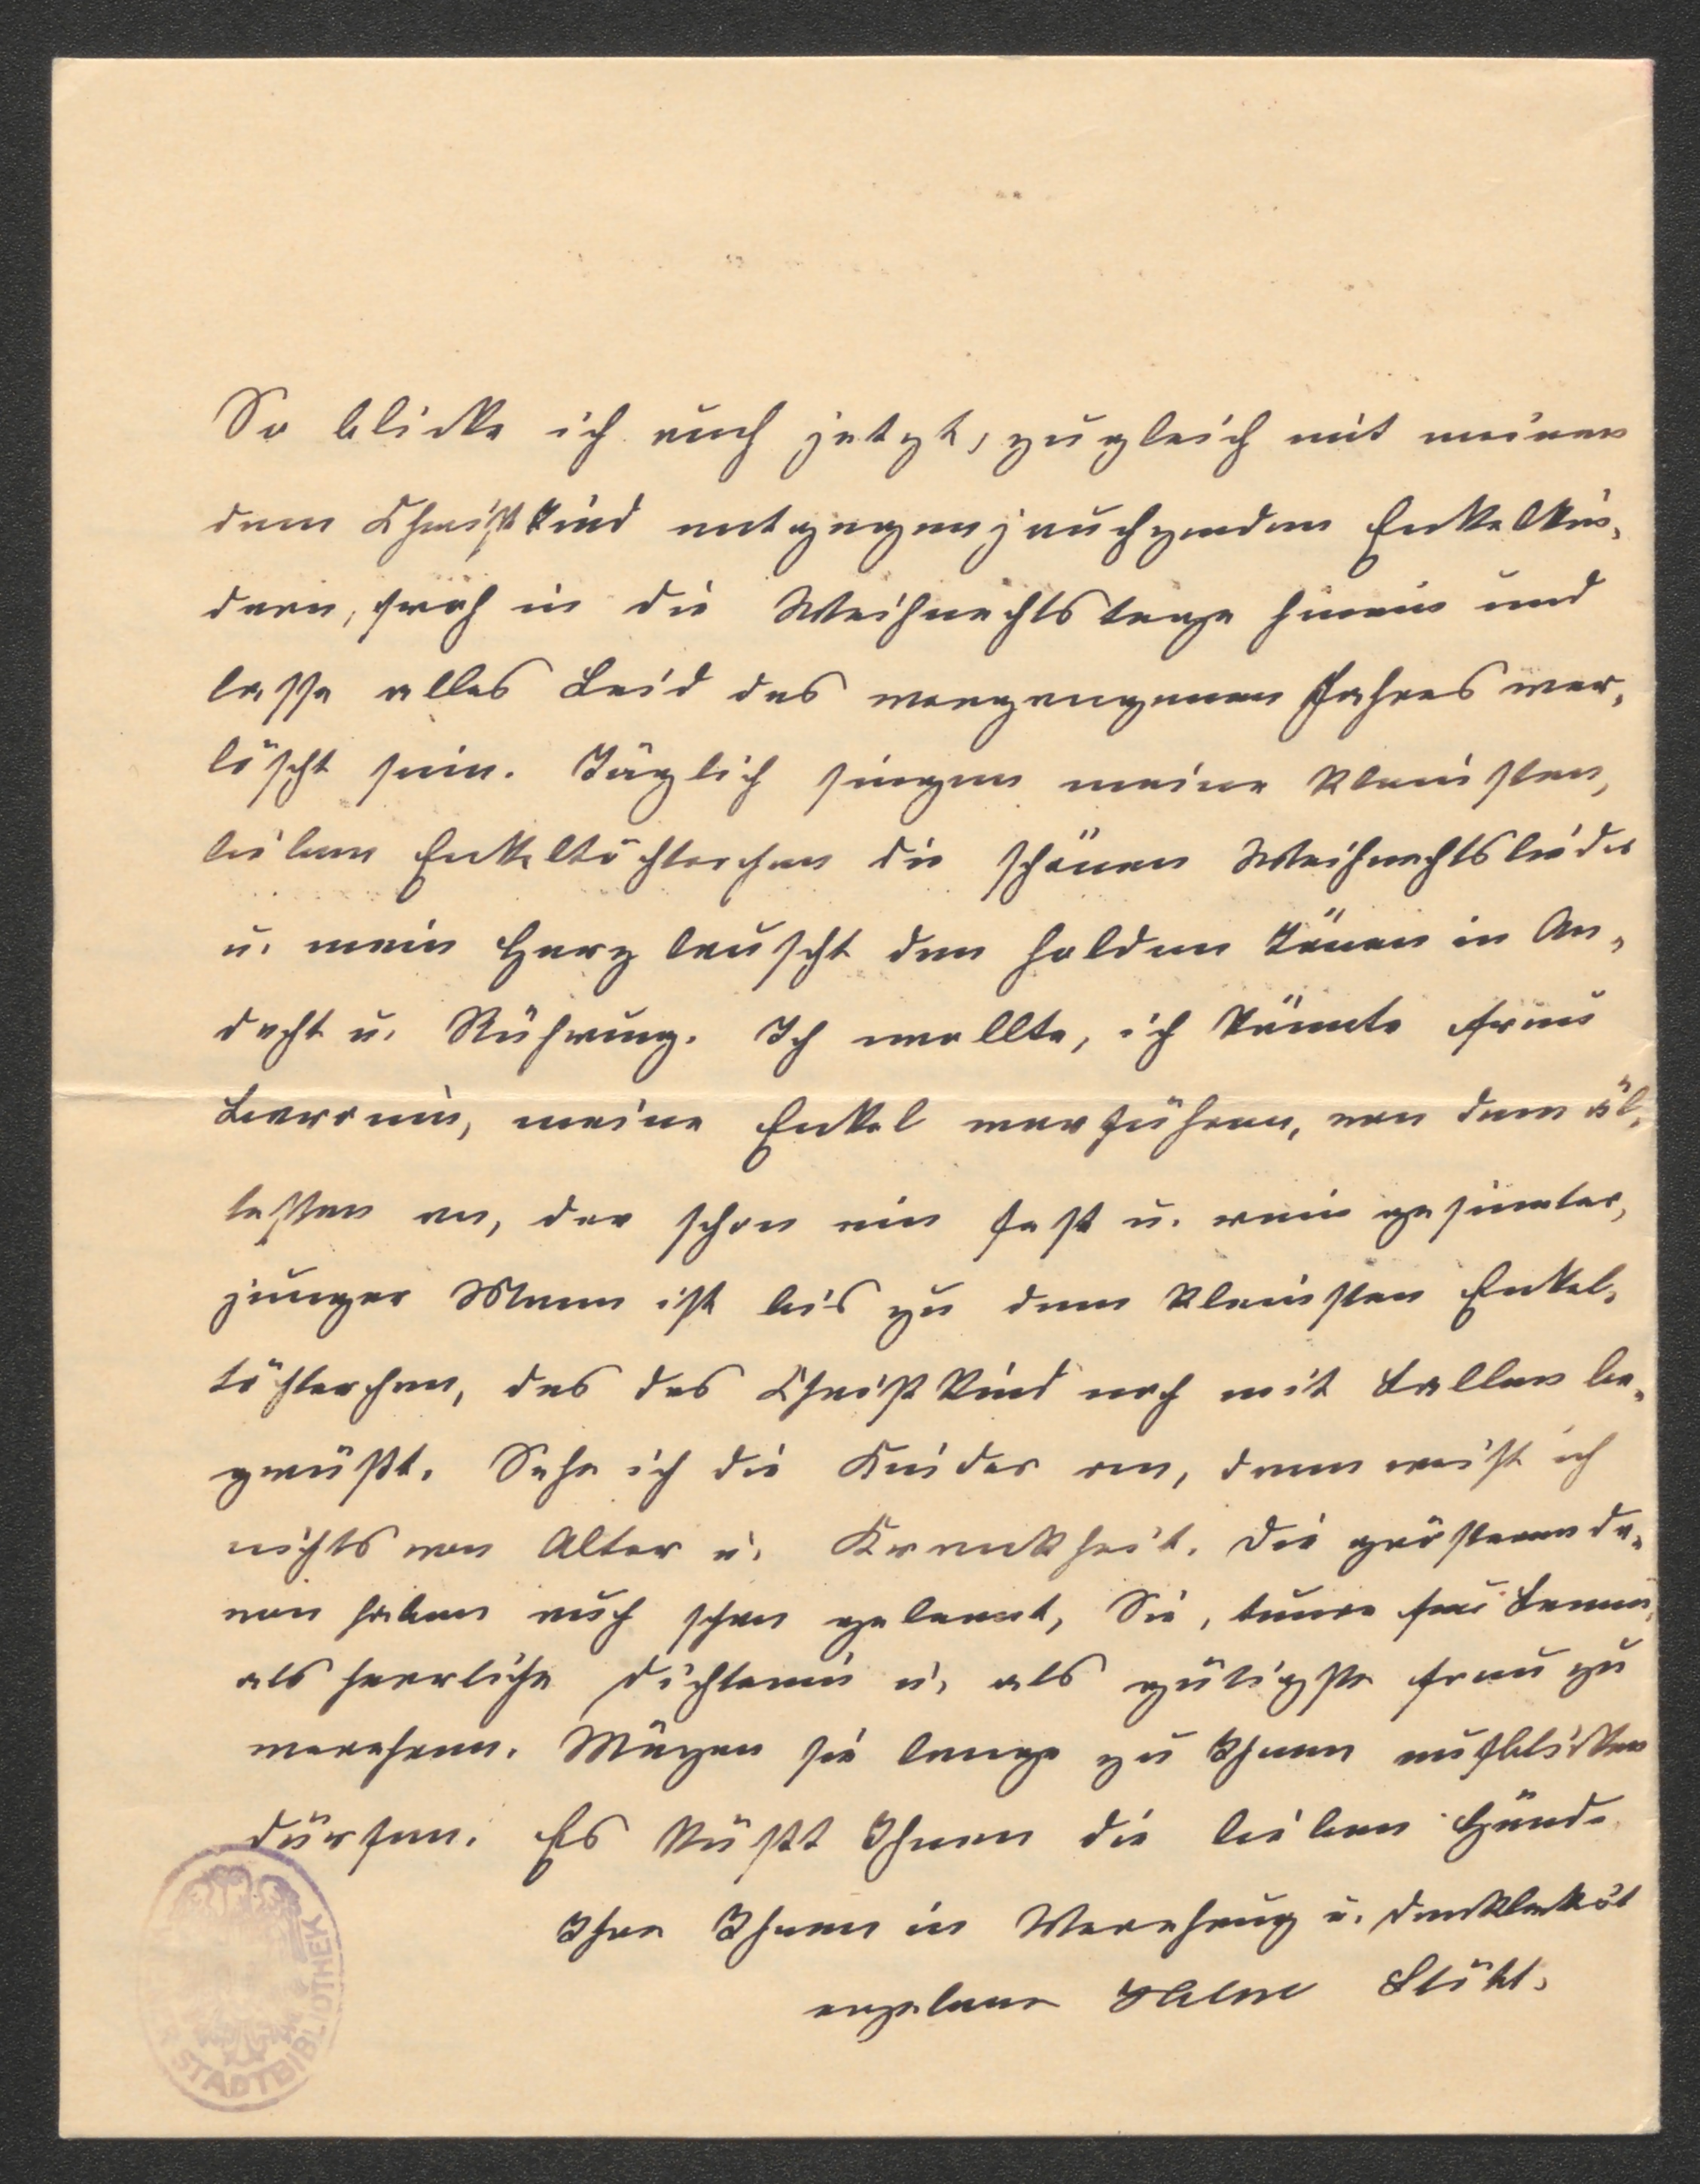 So blicke ich auch jetzt, zugleich mit meinen
dem Christkind entgegenjauchzenden Enkelkin-
dern, froh in die Weihnachtstage hinein und
lasse alles Leid des vergangenen Jahres ver-
löscht sein. Täglich singen meine kleinsten,
lieben Enkeltöchterchen die schönen Weihnachtslieder
u. mein Herz lauscht den holden Tönen in An-
dacht u. Rührung. Ich wollte, ich könnte Frau
Baronin, meine Enkel vorführen, von dem äl-
testen an, der schon ein fest u. rein gesinnter,
junger Mann ist bis zu dem kleinsten Enkel-
töchterchen, das das Christkind noch mit Lallen be-
grüßt. Sehe ich die Kinder an, dann weiß ich
nichts von Alter u. Krankheit. Die größeren da-
von haben auch schon gelernt, Sie, teure Frau Baronin,
als herrliche Dichterin u. als gütigste Frau zu
verehren. Mögen sie lange zu Ihnen aufblicken
dürfen. Es küßt Ihnen die lieben Hände
Ihre Ihnen in Verehrung u. Dankbarkeit
ergebene Helene Stökl.
STADTBIBLIOTHEK